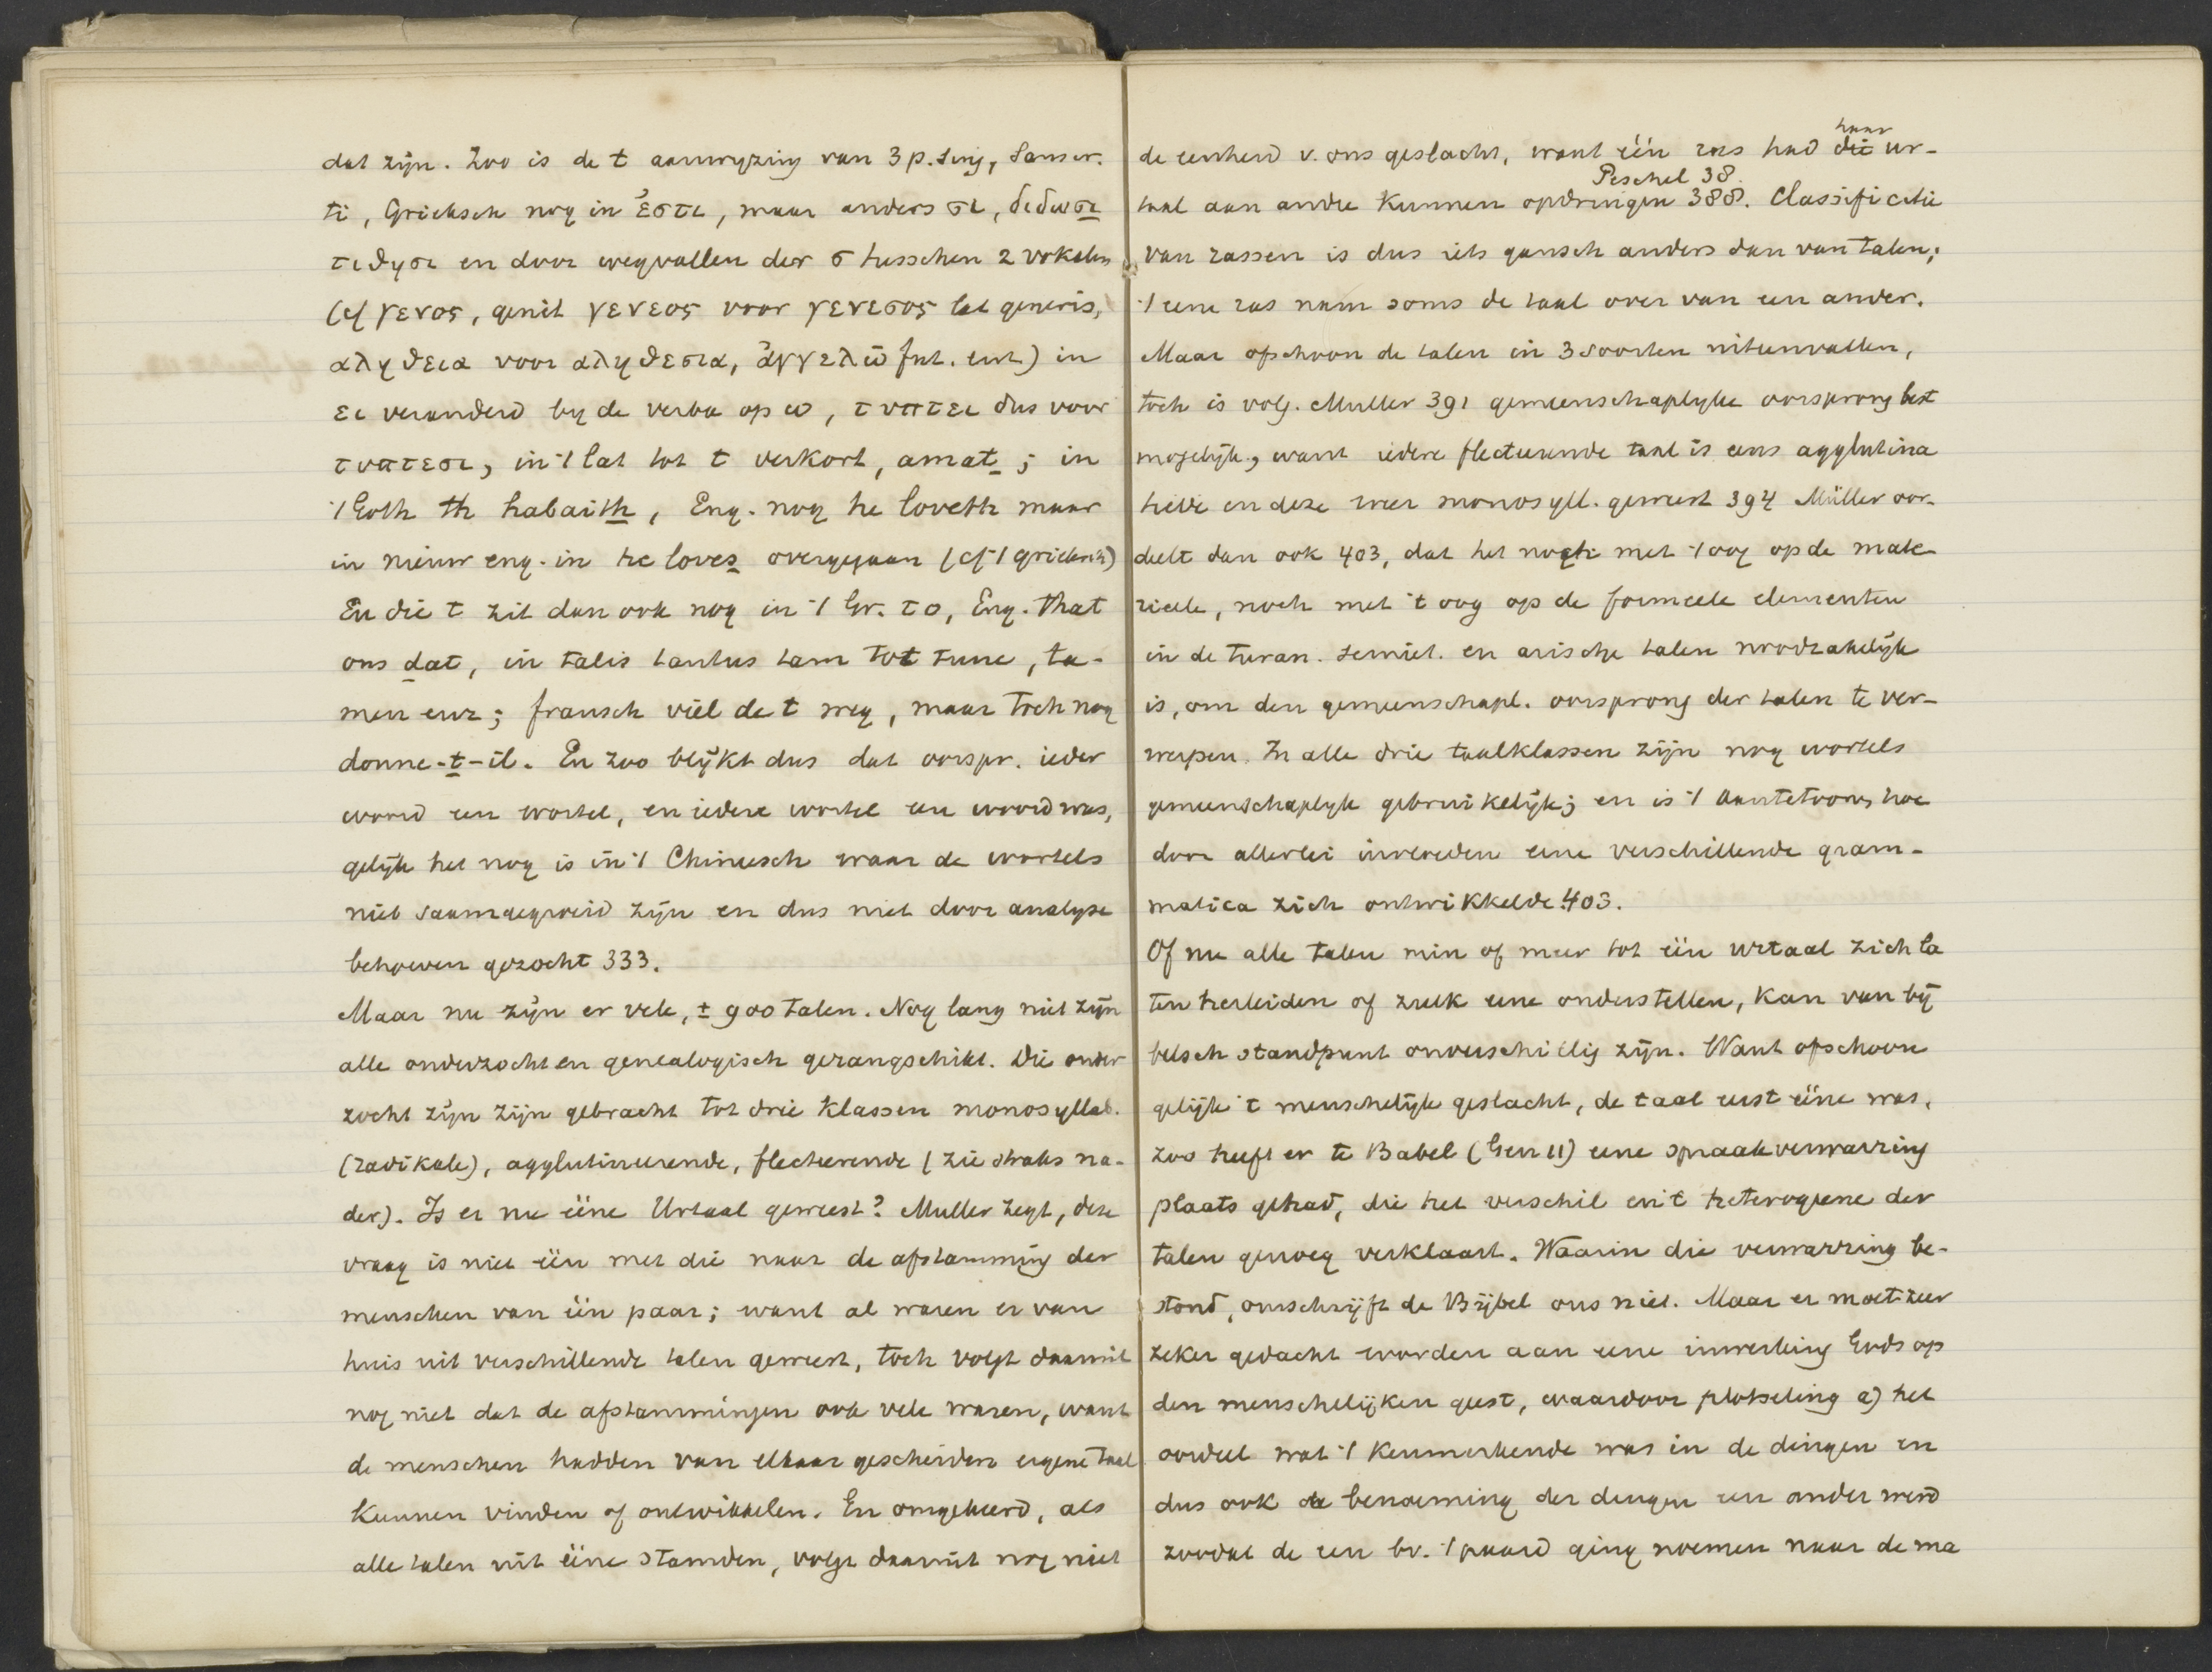 dat zijn. Zoo is de t aanwyzing van 3 p. sing, Sanscr.
ti, Grieksch nog in ἐστι, maar anders σι, διδωσι
τιθησι en door wegvallen der σ tusschen 2 vokalen
(cf γενος, genit γενεος voor γενεσος lat generis,
αληθεια voor αληθεσια, ἀγγελῶ fut. enz) in
ει veranderd by de verba op ω, τυπτει dus voor
τυπτεσι, in 't lat tot t verkort, amat; in
't Goth th habaith, Eng. nog he loveth maar
in nieuw eng. in he loves overgegaan (cf 't grieksch)
En die t zit dan ook nog in 't Gr. το, Eng. that
ons dat, in talis tantus tam tot tunc, ta-
men enz; fransch viel de t weg, maar toch nog
donne-t-il. En zoo blijkt dus dat oorspr. ieder
woord een wortel, en iedere wortel een woord was,
gelijk het nog is in 't Chineesch waar de wortels
niet saamgegroeid zijn en dus niet door analyse
behoeven gezocht 333.
Maar nu zijn er vele, ± 900 talen. Nog lang niet zijn
alle onderzocht en genealogisch gerangschikt. Die onder
zocht zijn zijn gebracht tot drie klassen monosyllab.
(radikale), agglutineerende, flecteerende (zie straks na-
der). Is er nu ééne Urtaal geweest? Muller zegt, deze
vraag is niet één met die naar de afstamming der
menschen van één paar; want al waren er van
huis uit verschillende talen geweest, toch volgt daaruit
nog niet dat de afstammingen ook vele waren, want
de menschen hadden van elkaar gescheiden eigene taal
kunnen vinden of ontwikkelen. En omgekeerd, als
alle talen uit ééne stamden, volgt daaruit nog niet
de eenheid v. ons geslacht, want één ras had die haar ur-
taal aan andre kunnen opdringen 388. Peschel 38. Classificatie
van rassen is dus iets gansch anders dan van talen;
't eene ras nam soms de taal over van een ander.
Maar ofschoon de talen in 3 soorten uiteenvallen,
toch is volg. Muller 391 gemeenschaplyke oorsprong best
mogelijk, want iedere flecteerende taal is eens agglutina
tieve en deze weer monosyll. geweest 394 Müller oor-
deelt dan ook 403, dat het noch met 't oog op de mate-
rieele, noch met 't oog op de formeele elementen
in de turan. semiet. en arische talen noodzakelijk
is, om den gemeenschapl. oorsprong der talen te ver-
werpen. In alle drie taalklassen zijn nog wortels
gemeenschaplyk gebruikelijk; en is 't aantetoonen, hoe
door allerlei invloeden eene verschillende gram-
matica zich ontwikkelde. 403.
Of nu alle talen min of meer tot één urtaal zich la
ten herleiden of zulk eene onderstellen, kan van bij
belsch standpunt onverschillig zijn. Want ofschoon
gelijk 't menschelijk geslacht, de taal eerst ééne was,
zoo heeft er te Babel (Gen 11) eene spraakverwarring
plaats gehad, die het verschil en 't heterogene der
talen genoeg verklaart. Waarin die verwarring be-
stond, omschrijft de Bijbel ons niet. Maar er moet zeer
zeker gedacht worden aan eene inwerking Gods op
den menschelijken geest, waardoor plotseling a) het
oordeel wat 't kenmerkende was in de dingen en
dus ook de benoeming der dingen een ander werd
zoodat de een bv. 't paard ging noemen naar de ma